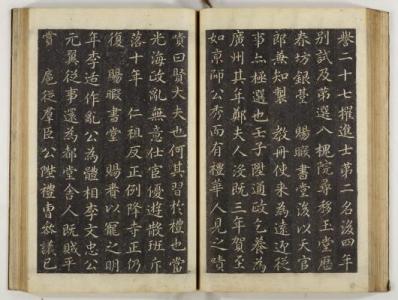 譽二十七擢進士第二名後四年
別試及第選入槐院尋移玉堂歷
春坊銀臺 賜暇書堂後以天官
郎兼知製 敎冊使來為遠迎從
事亦極選也壬子陞通政乞養為
廣州其年鄭夫人沒旣三年賀至
如京師公秀而有禮華人見之嘖
賞曰賢大夫也何其習於禮也當
光海政亂無意仕宦優遊散班斥
落十年 仁祖反正例降寺正仍
復 賜暇書堂 賜眷以寵之明
年李适作亂公為體相李文忠公
元翼從事還為都堂舍人旣賊平
賞 扈從羣臣公陞禮曹叅議已